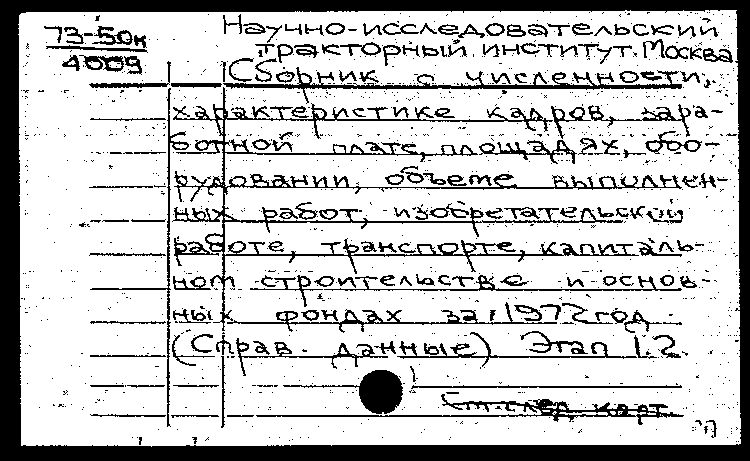 73-50к
4009
Научно-исследовательский
тракторный институт. Москва
Сборник о численности,
характеристике кадров, зара-
ботной плате, площадях, обо-
рудовании, объеме выполнен-
ных работ, изобретательской
работе, транспорте, капиталь-
ном строительстве и основ-
ных фондах за 1972 год.
(Справ. данные). Этап 1.2.
См. след. карт.